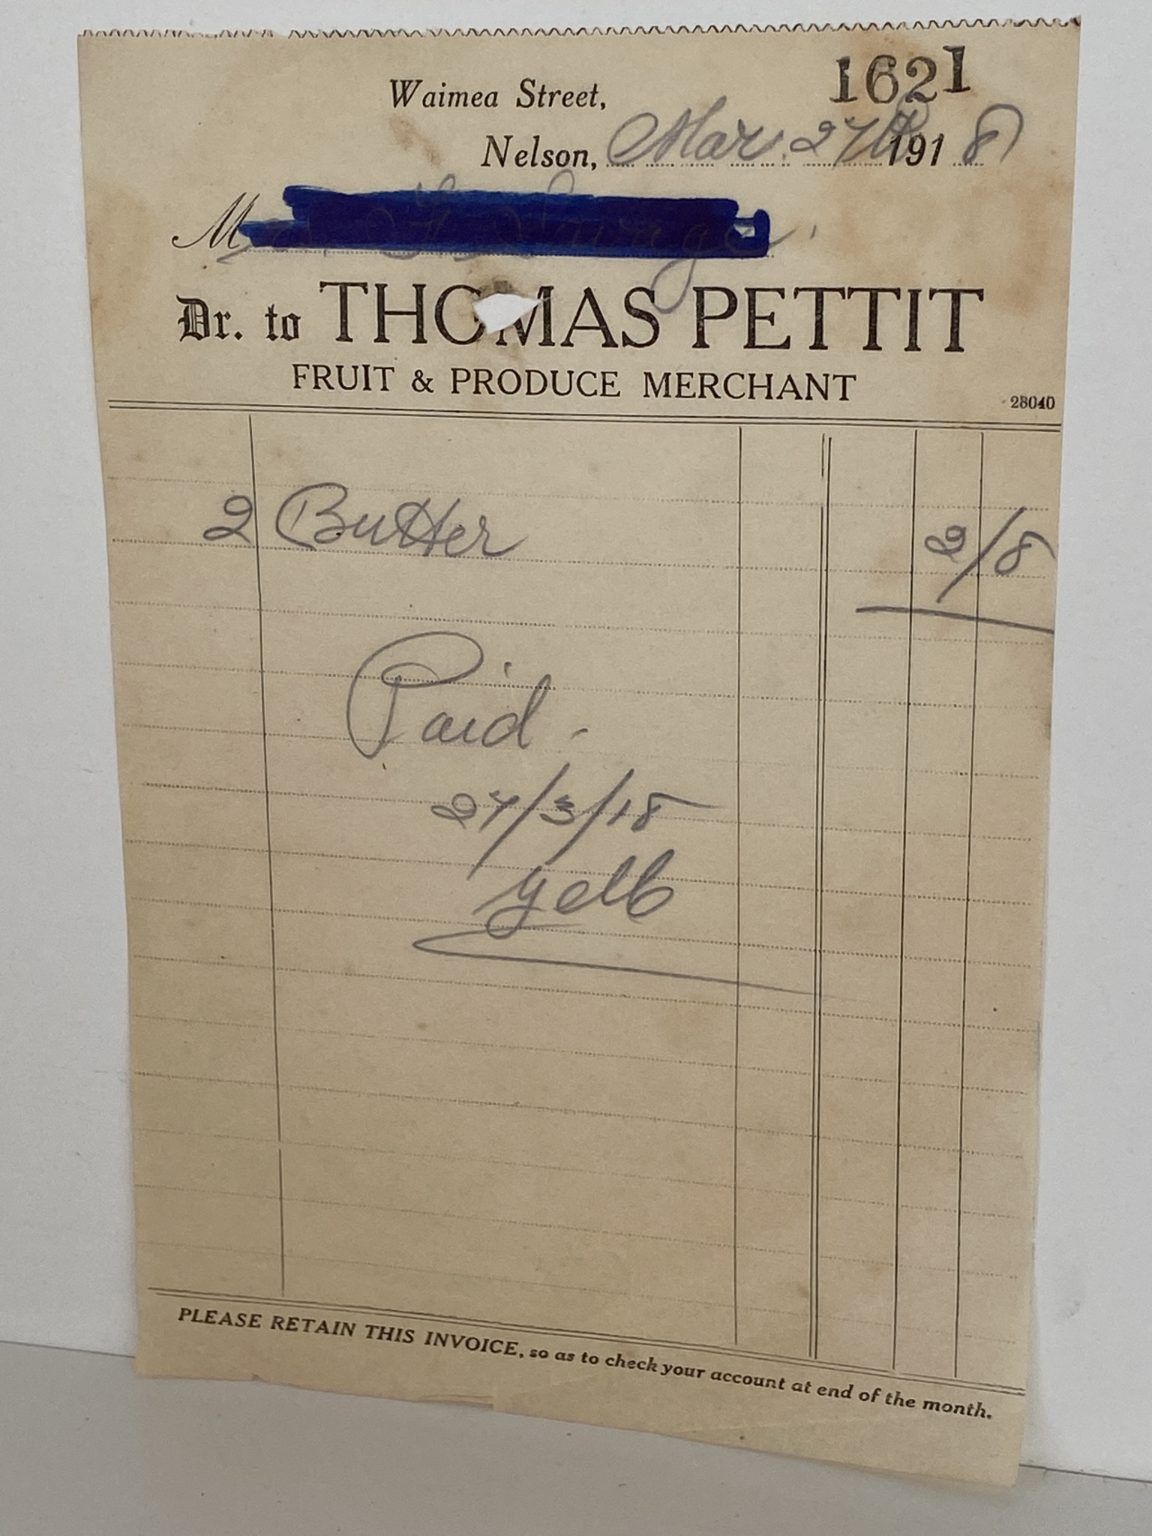 1621
Waimea Street,
Nelson, Mar. 27th 1918
M
Dr. to THOMAS PETTIT
FRUIT & PRODUCE MERCHANT
28040
2 Butter 2/8
Paid.
27/3/18
PLEASE RETAIN THIS INVOICE, so as to check your account at end of the month.